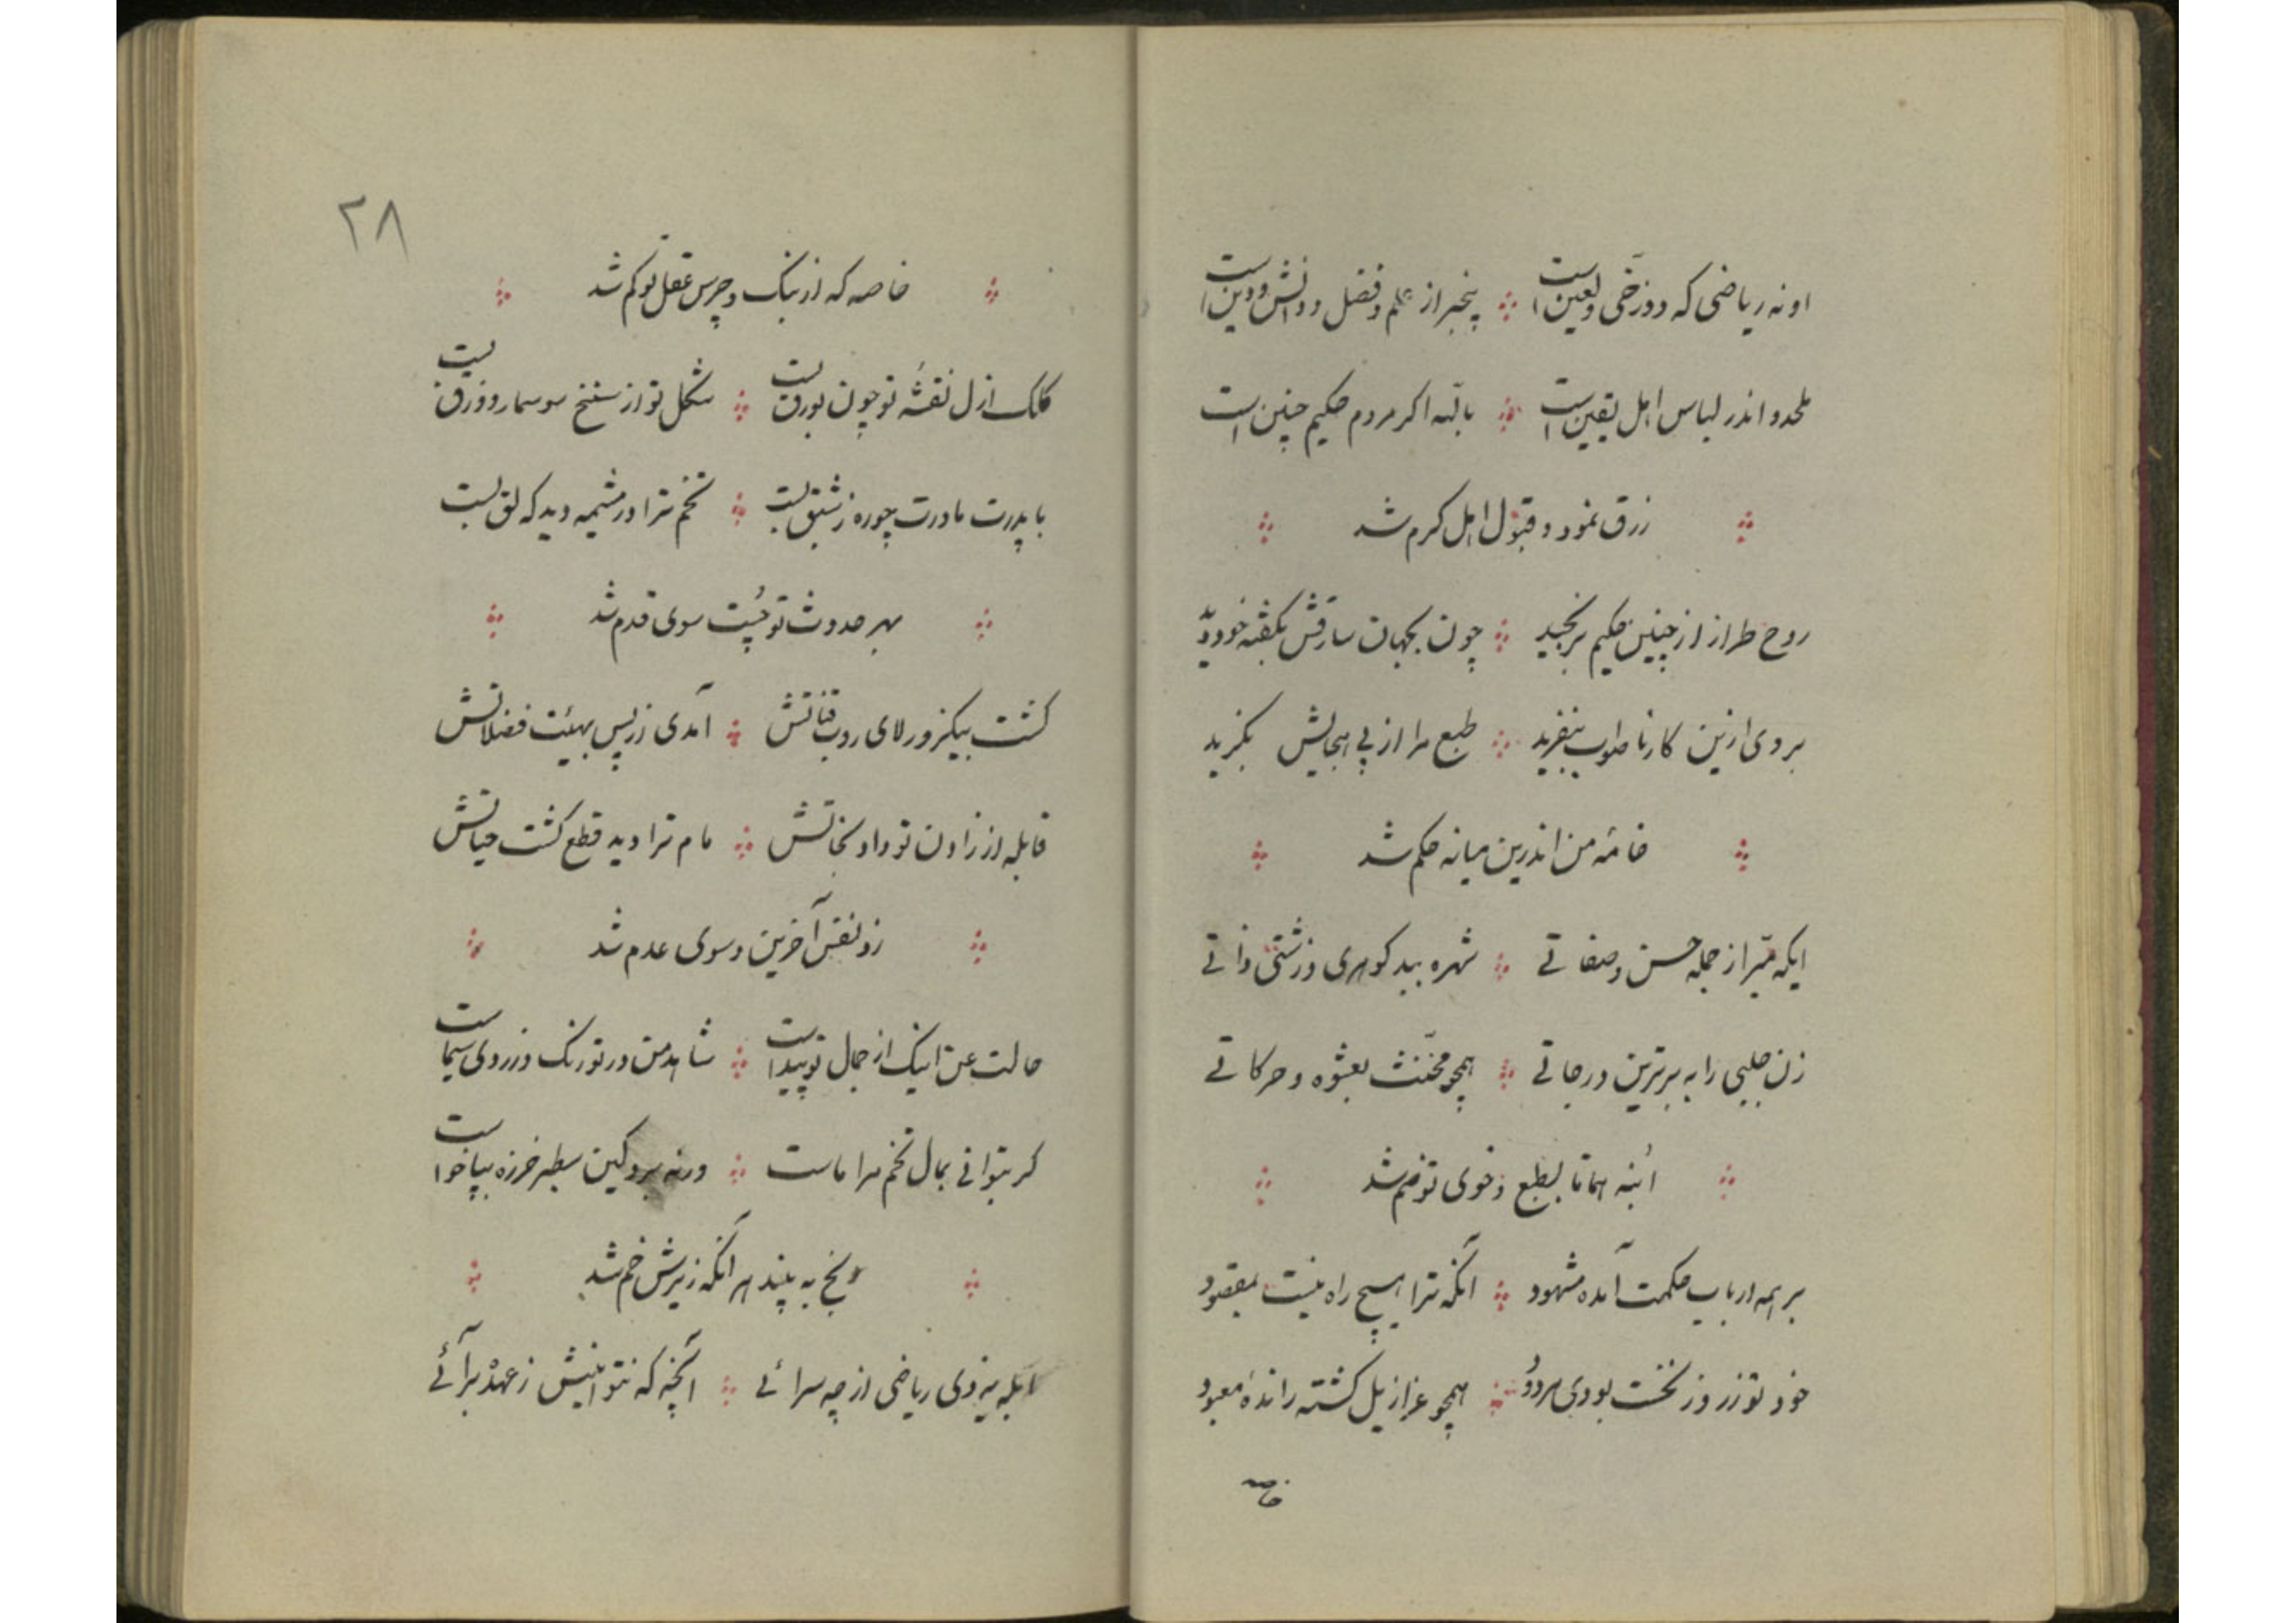 او نه ریاضی که دوزخی و لعین است بیخبر از علم و فضل و دانش و دین است
ملحد و اندر لباس اهل یقین است باللّه اکر مردم حکیم چنین است
زرق نمود و قبول اهل کرم شد
روح طراز از چنین حکیم برنجید چون بجهان سارقش بگفته خود دید
بر وی ازین کار ناصواب بنفرید طبع مرا از پی اهجایش بگزید
خامهٔ من اندرین میانه حکم شد
ایکه مبّرا ز جمله حسن و صفاتی شهره ببد کوهری و زشتی ذاتی
زن جلبی را به برترین درجاتی همچو مخنّث بعشوه و حرکاتی
ابنه همانا بطبع و خوی تو ضم شد
بر همه ارباب حکمت آمده مشهود آنکه ترا هیچ راه نیست بمقصود
خود تو ز روز نخست بودی مردود همچو عزازیل کشته راندهٔ معبود
خاصه
۲۸
خاصه که از بنک و چرس عقل تو کم شد
کلک ازل نقشهٔ تو چون بورق بست شکل تو از سنخ سوسمار و وزق بست
با پدرت مادرت چو ره ز شبق بست تخم ترا در مشیمه دید که لق بست
بهر حدوث تو چُست سوی قدم شد
کشت بیکزور لای روب قناتش آمدی از پس بهیئت فضلاتش
قابله از زادن تو داد نجاتش مام ترا دید قطع کشت حیاتش
زد نفس آخرین و سوی عدم شد
حالت عنّ اینک از جمال تو پیداست شاهد من در تو رنک و زردی سیماست
کر بتوانی بمال تخم مرا ماست ورنه برو کین سطبر خرزه بپا خواست
به بیند هر آنکه زیرش خم شد
ابله یزدی ریاضی از چه سرائی آنچه که نتوانیش ز عهده برآئی